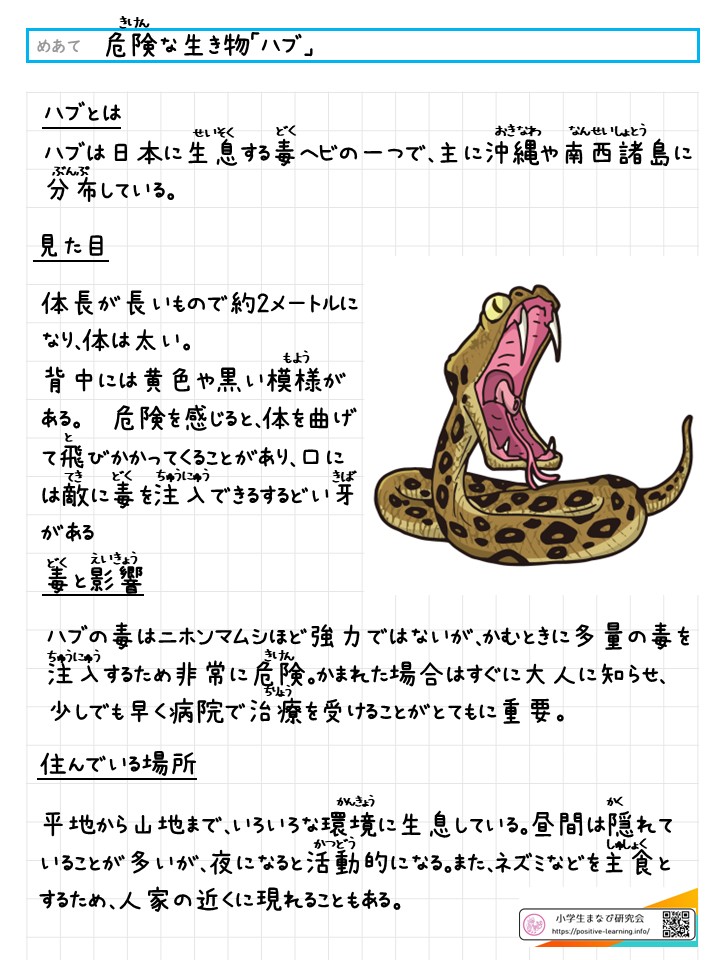 きけん
めあて 危険な生き物「ハブ」
ハブとは
せいそく どく おきなわ なんせいしょとう
ハブは日本に生息する毒ヘビの一つで、主に沖縄や南西諸島に
ぶんぷ
分布している。
見た目
体長が長いもので約2メートルに
なり、体は太い。
もよう
背中には黄色や黒い模様が
ある。 危険を感じると、体を曲げ
と
て飛びかかってくることがあり、口に
てき どく ちゅうにゅう きば
は敵に毒を注入できるするどい牙
がある
どく えいきょう
毒と影響
ハブの毒はニホンマムシほど強力ではないが、かむときに多量の毒を
ちゅうにゅう きけん
注入するため非常に危険。かまれた場合はすぐに大人に知らせ、
ちりょう
少しでも早く病院で治療を受けることがとてもに重要。
住んでいる場所
かんきょう かく
平地から山地まで、いろいろな環境に生息している。昼間は隠れて
かつどう しゅしょく
いることが多いが、夜になると活動的になる。また、ネズミなどを主食と
するため、人家の近くに現れることもある。
小学生まなび研究会
https://positive-learning.info/